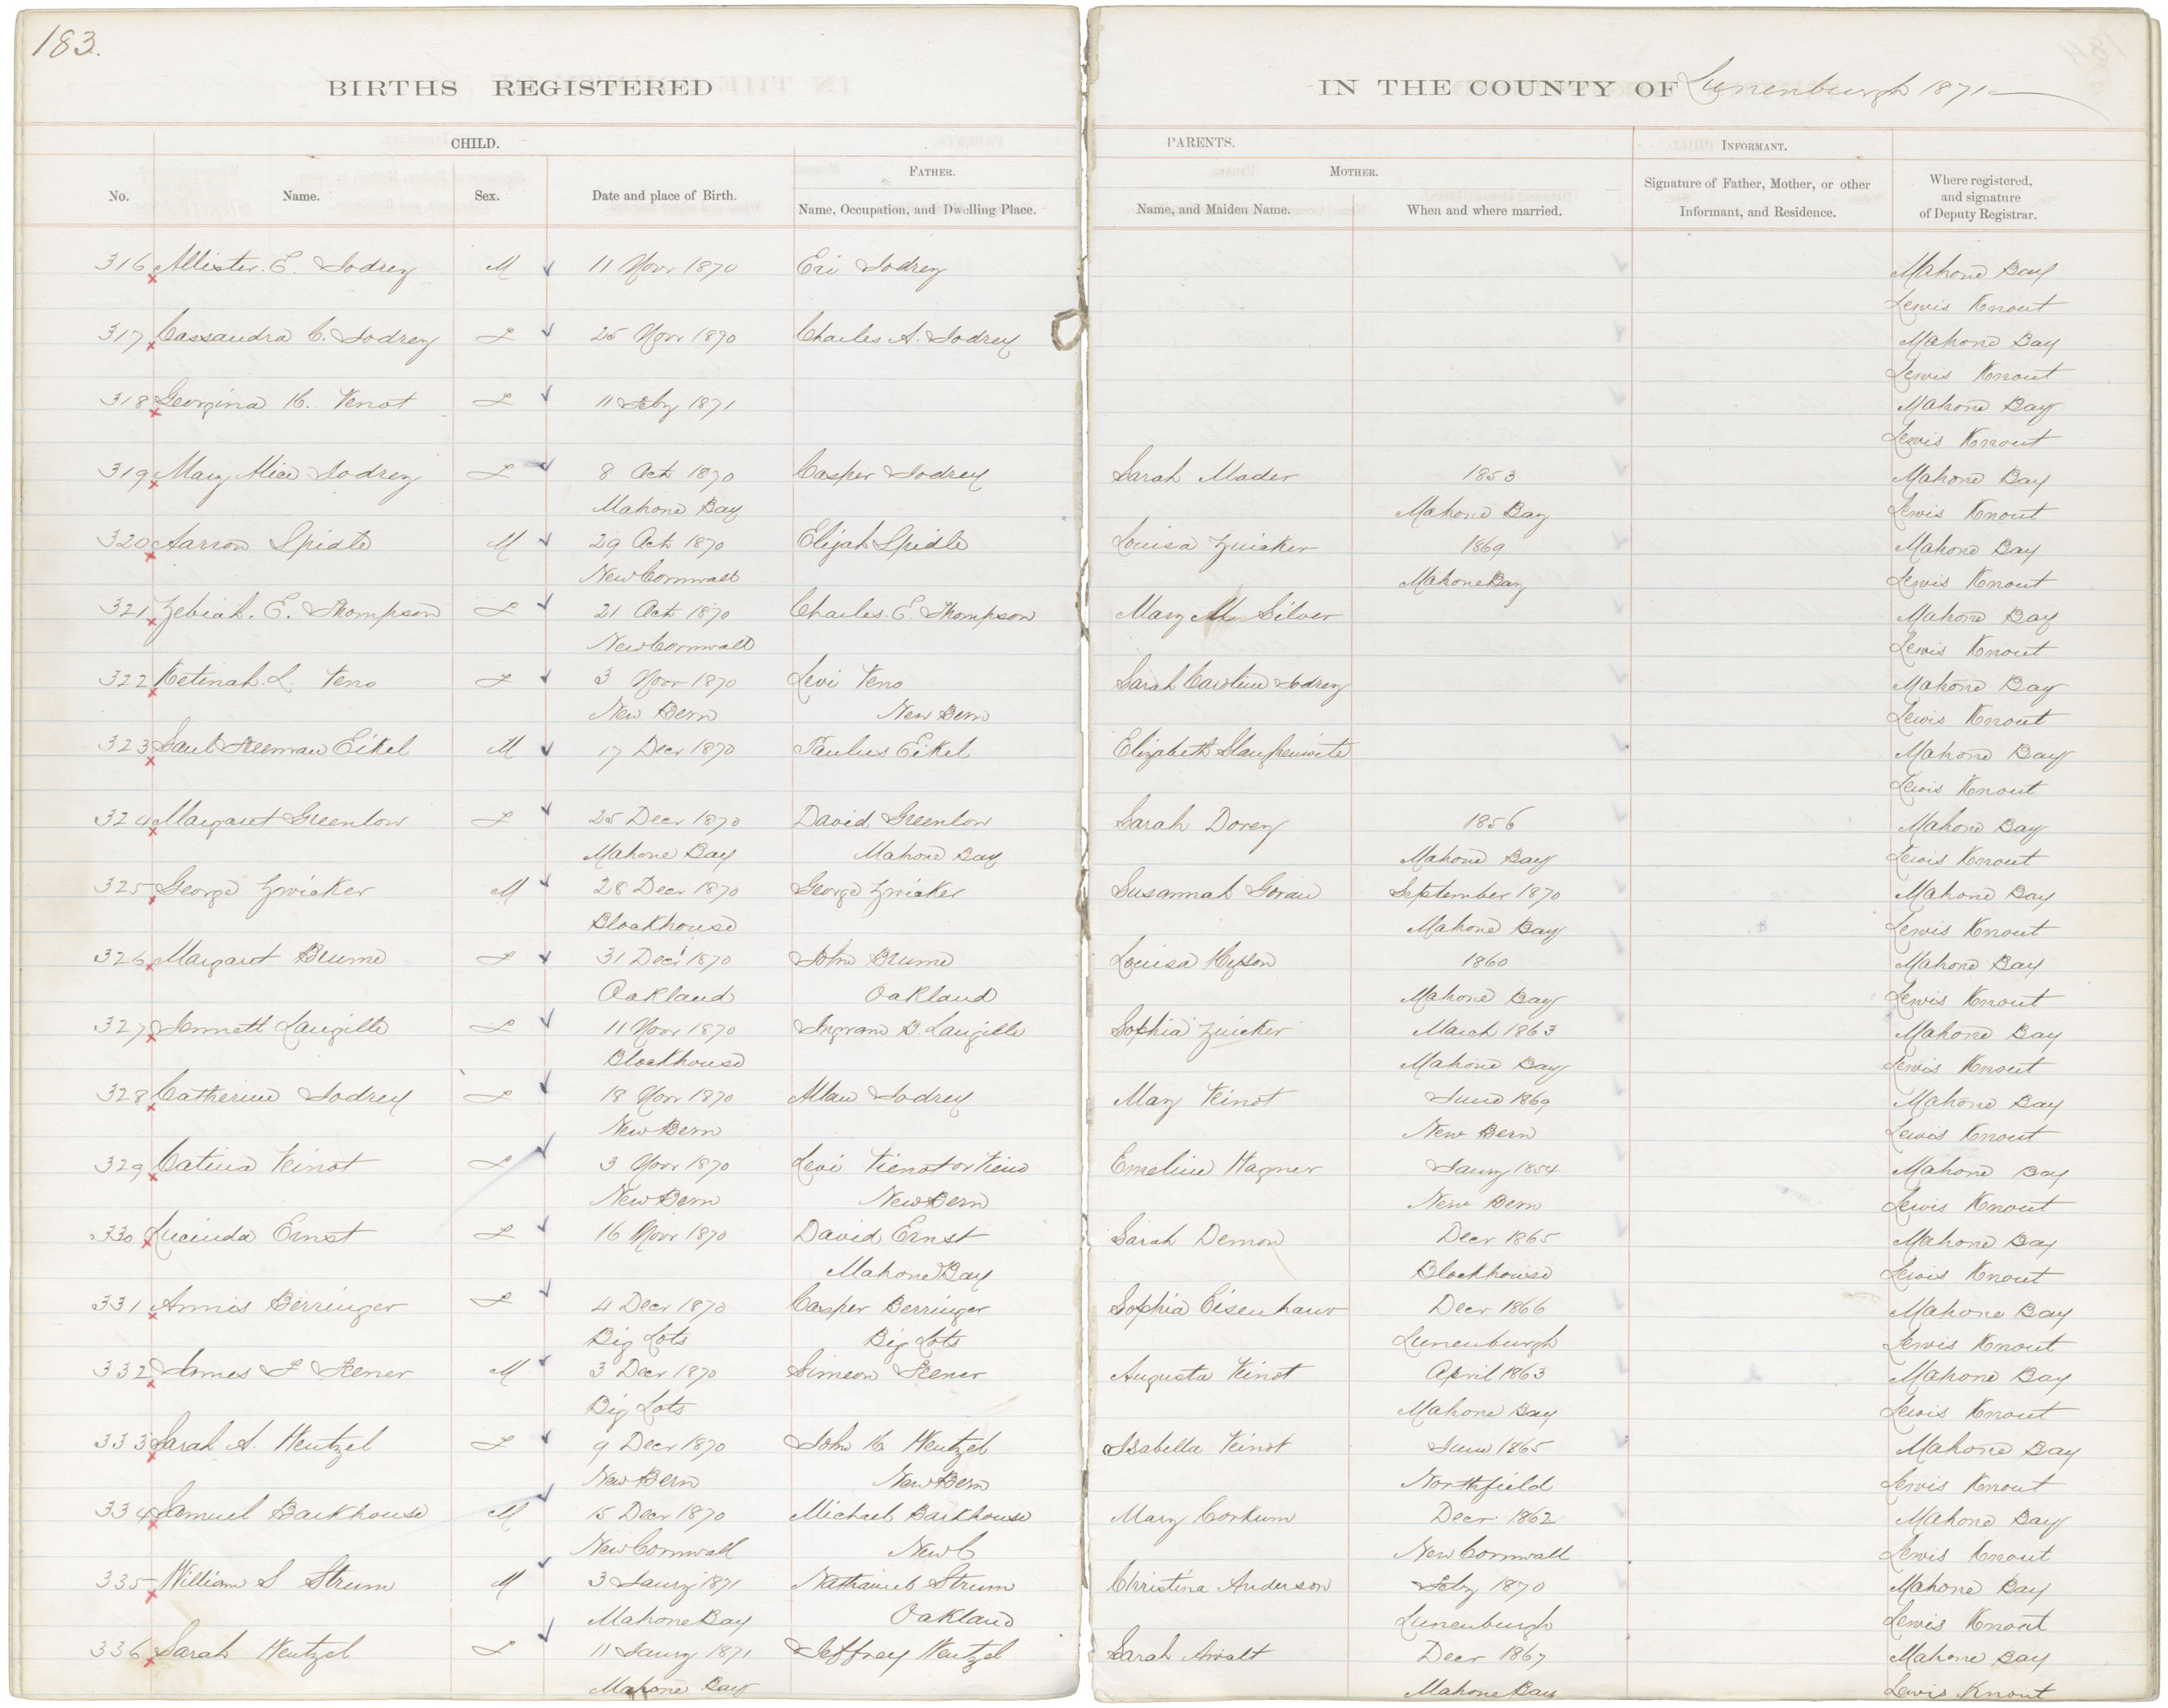 183.
BIRTHS REGISTERED IN THE COUNTY OF Lunenburgh 1871
CHILD. PARENTS. INFORMANT.
FATHER. MOTHER.
No. Name. Sex. Date and place of Birth. Name, Occupation, and Dwelling Place. Name, and Maiden Name. When and where married. Signature of Father, Mother, or other Informant, and Residence. Where registered, and signature of Deputy Registrar.
316 Allister. E. Jodrey M 11 Novr 1870 Eri Jodrey Mahone Bay
Lewis Knout
317 Cassandra C. Jodrey F 25 Novr 1870 Charles A. Jodrey Mahone Bay
Lewis Knout
318 Georgina H. Venot F 11 Feby 1871 Mahone Bay
Lewis Knout
319 Mary Alice Jodrey F 8 Oct 1870 Casper Jodrey Sarah Mader 1853 Mahone Bay
Mahone Bay Mahone Bay Lewis Knout
320 Aarron Spidle M 29 Oct 1870 Elijah Spidle Louisa Zuicker 1869 Mahone Bay
New Cornwall Mahone Bay Lewis Knout
321 Zebiah. E. Thompson F 21 Oct 1870 Charles. E. Thompson Mary M Silver Mahone Bay
New Cornwall Lewis Knout
322 Ketinah. L. Veno F 3 Novr 1870 Levi Veno Sarah Caroline Jodrey Mahone Bay
New Bern New Bern Lewis Knout
323 Saul Freeman Eikel M 17 Decr 1870 Paulus Eikel Elizabeth Mahone Bay
Lewis Knout
324 Margaret Greenlow F 25 Decr 1870 David Greenlow Sarah Dorey 1856 Mahone Bay
Mahone Bay Mahone Bay Mahone Bay Lewis Knout
325 George Zwicker M 28 Decr 1870 George Zwicker Susannah Goran September 1870 Mahone Bay
Blockhouse Mahone Bay Lewis Knout
326 Margaret Brume F 31 Decr 1870 John Brume Louisa Hyson 1860 Mahone Bay
Oakland Oakland Mahone Bay Lewis Knout
327 Jennett Langille F 11 Novr 1870 Ingram B. Langille Sophia Zuicker March 1863 Mahone Bay
Blockhouse Mahone Bay Lewis Knout
328 Catherine Jodrey F 18 Novr 1870 Allan Jodrey Mary Veinot June 1869 Mahone Bay
New Bern New Bern Lewis Knout
329 Catina Veinot F 3 Novr 1870 Levi Vienot or Vieno Emeline Wagner Jany 1854 Mahone Bay
New Bern New Bern New Bern Lewis Knout
330 Lucinda Ernst F 16 Novr 1870 David Ernst Sarah Demon Decr 1865 Mahone Bay
Mahone Bay Blockhouse Lewis Knout
331 Annis Berringer F 4 Decr 1870 Casper Berringer Sophia Eisenhaur Decr 1866 Mahone Bay
Big Lots Big Lots Lunenburgh Lewis Knout
332 James F Fener M 3 Decr 1870 Simeon Fener Augusta Veinot April 1863 Mahone Bay
Big Lots Mahone Bay Lewis Knout
333 Sarah A. Wentzel F 9 Decr 1870 John H Wentzel Isabella Veinot June 1865 Mahone Bay
New Bern New Bern Northfield Lewis Knout
334 Samuel Barkhouse M 15 Decr 1870 Michael Barkhouse Mary Corkum Decr 1862 Mahone Bay
New Cornwall New C New Cornwall Lewis Knout
335 William S Strum M 3 Jany 1871 Nathaniel Strum Christina Anderson Feby 1870 Mahone Bay
Mahone Bay Oakland Lunenburgh Lewis Knout
336 Sarah Wentzel F 11 Jany 1871 Jeffrey Wentzel Sarah Awalt Decr 1867 Mahone Bay
Mahone Bay Mahone Bay Lewis Knout